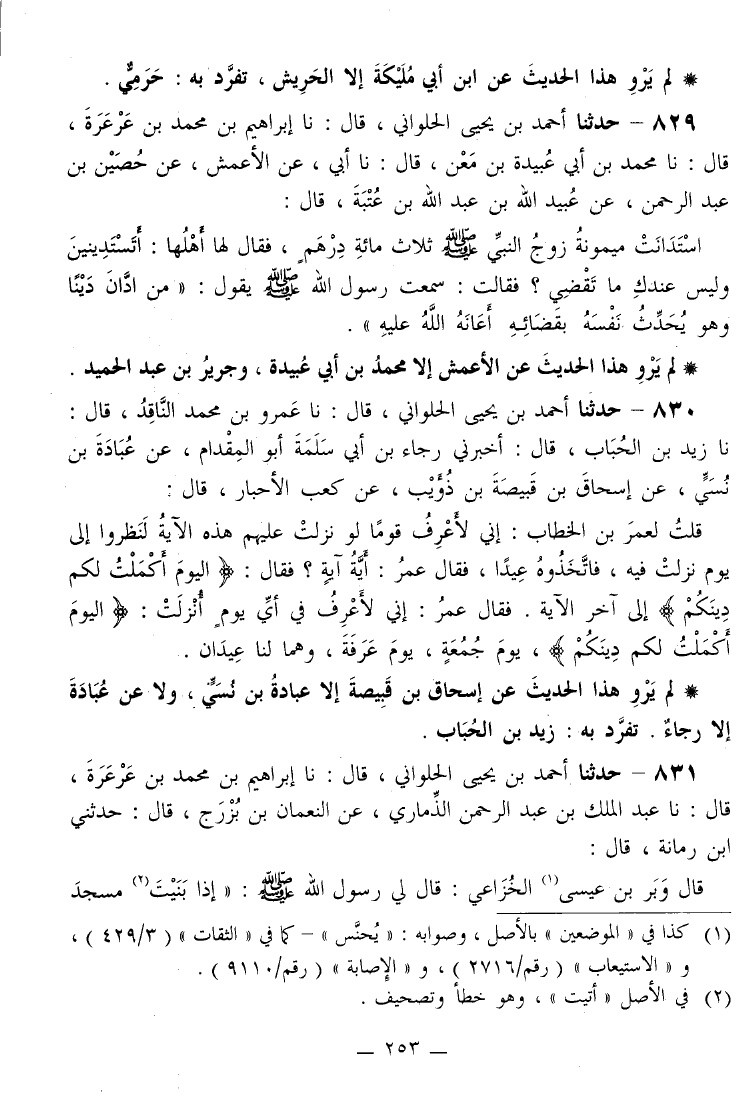 * لم يَرْوِ هذا الحديثَ عن ابن أبي مُلَيْكَةَ إلا الحَرِيش ، تفرَّد به : حَرَمِيٌّ .
٨٢٩ – حدثنا أحمد بن يحيى الحلواني ، قال : نا إبراهيم بن محمد بن عَرْعَرَةَ ،
قال : نا محمد بن أبي عُبيدة بن مَعْن ، قال : نا أبي ، عن الأعمش ، عن حُصَيْن بن
عبد الرحمن ، عن عُبيد الله بن عبد الله بن عُتْبَةَ ، قال :
اسْتَدَانَتْ ميمونةُ زوجُ النبيِّ ﷺ ثلاث مائةِ دِرْهَمٍ ، فقال لها أَهْلُها : أَتَسْتَدِينينَ
وليس عندكِ ما تَقْضِي ؟ فقالت : سمعت رسول الله ﷺ يقول : « من ادَّانَ دَيْنًا
وهو يُحَدِّثُ نَفْسَهُ بقَضَائِهِ أعَانَهُ اللَّهُ عليهِ » .
* لم يَرْوِ هذا الحديثَ عن الأعمش إلا محمدُ بن أبي عُبيدة ، وجريرُ بن عبد الحميد .
٨٣٠ – حدثنا أحمد بن يحيى الحلواني ، قال : نا عَمرو بن محمد النَّاقِدُ ، قال :
نا زيد بن الحُبَاب ، قال : أخبرني رجاء بن أبي سَلَمَةَ أبو المِقْدام ، عن عُبَادَةَ بن
نُسَيٍّ ، عن إسحاق بن قَبِيصَةَ بن ذُؤَيْب ، عن كعب الأحبار ، قال :
قلتُ لعمرَ بن الخطاب : إني لأَعْرِفُ قومًا لو نزلتْ عليهم هذه الآيةُ لَنَظروا إلى
يوم نزلتْ فيه ، فاتَّخَذُوهُ عِيدًا ، فقال عمرُ : أَيَّةُ آيةٍ ؟ فقال : ﴿ اليومَ أَكْمَلْتُ لكم
دِينَكُمْ ﴾ إلى آخر الآية . فقال عمرُ : إني لأَعْرِفُ في أيِّ يومٍ أُنْزِلَتْ : ﴿ اليومَ
أَكْمَلْتُ لكم دِينَكُمْ ﴾ ، يومَ جُمُعَةٍ ، يومَ عَرَفَةَ ، وهما لنا عِيدَان .
* لم يَرْوِ هذا الحديثَ عن إسحاق بن قَبِيصةَ إلا عبادةُ بن نُسَيٍّ ، ولا عن عُبَادَةَ
إلا رجاءٌ . تفرَّد به : زيد بن الحُبَاب .
٨٣١ – حدثنا أحمد بن يحيى الحلواني ، قال : نا إبراهيم بن محمد بن عَرْعَرَةَ ،
قال : نا عبد الملك بن عبد الرحمن الذِّماري ، عن النعمان بن بُزْرَج ، قال : حدثني
ابن رمانة ، قال :
قال وَبَر بن عيسى(١) الخُزَاعي : قال لي رسول الله ﷺ : « إذا بَنَيْتَ(٢) مسجدَ
(١) كذا في « الموضعين » بالأصل ، وصوابه : « يُحَنَّس » – كما في « الثقات » ( ٤٢٩/٣ ) ،
و « الاستيعاب » ( رقم/٢٧١٦ ) ، و « الإصابة » ( رقم/٩١١٠ ) .
(٢) في الأصل « أتيت » ، وهو خطأ وتصحيف .
– ٢٥٣ –